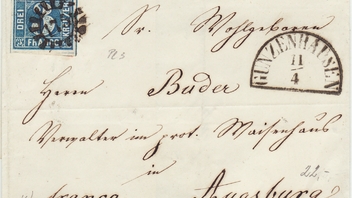 DREI
Sr. Wohlgeboren
GUNZENHAUSEN
11
4
Herrn Bader
Verwalter im prot. Waisenhaus
in
franco Augsburg
22,-